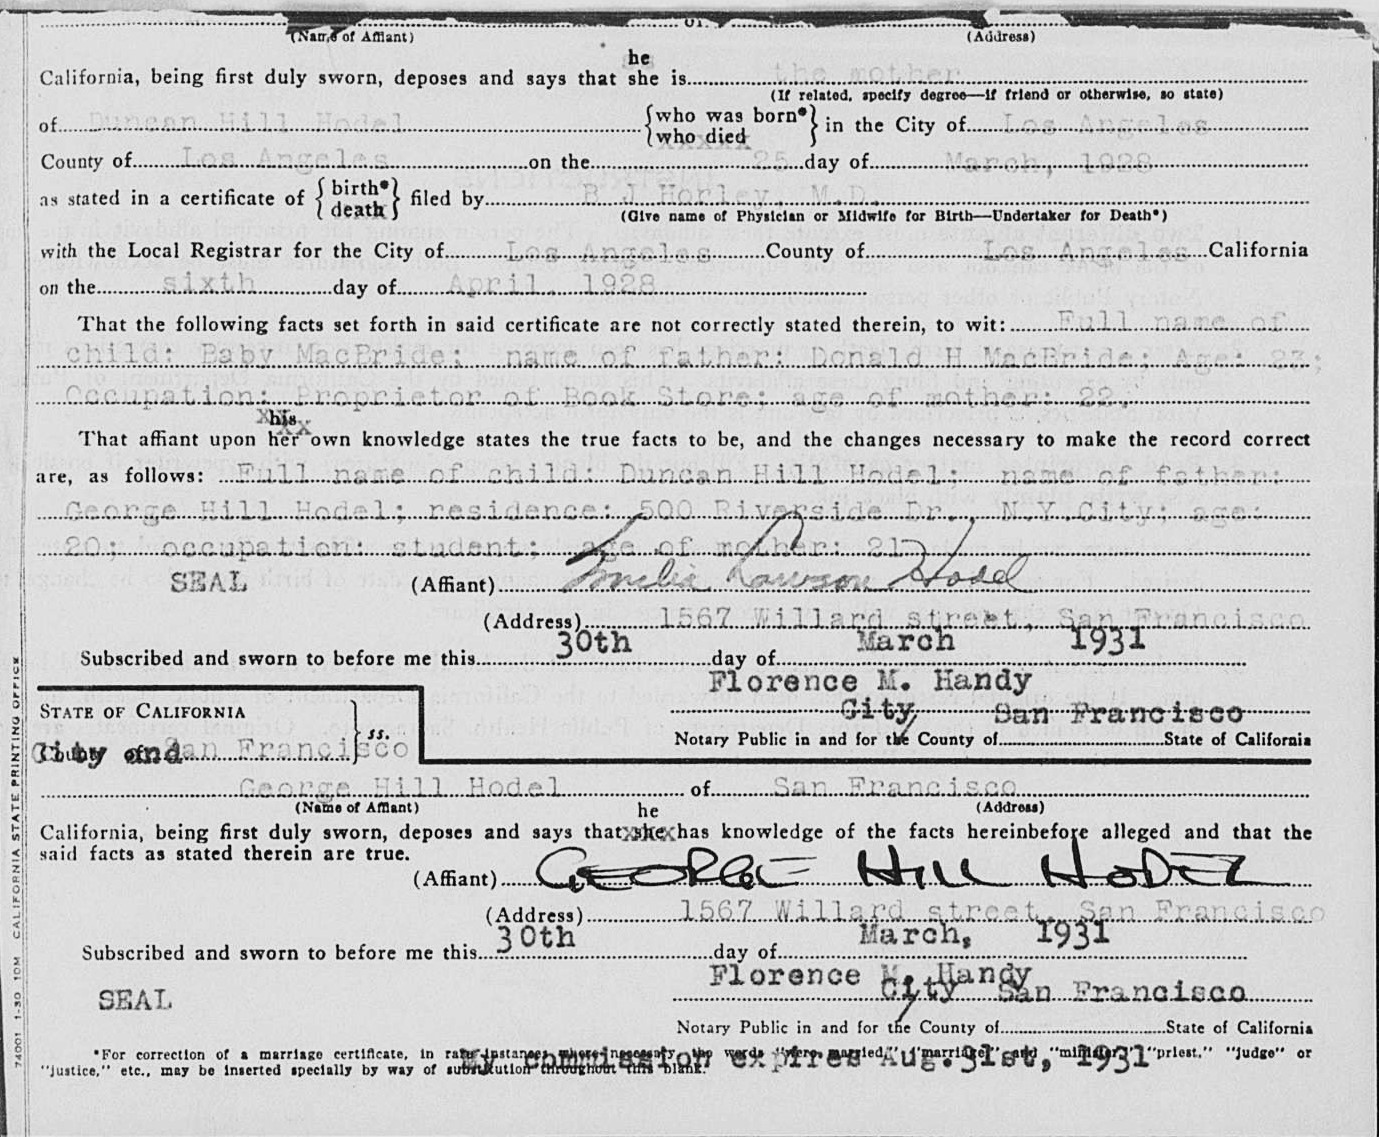 of
(Name of Affiant) (Address)
he
California, being first duly sworn, deposes and says that she is the mother
(If related, specify degree—if friend or otherwise, so state)
of Duncan Hill Hodel {who was born* who died} in the City of Los Angeles
xxxxx
County of Los Angeles on the 25 day of March, 1928
as stated in a certificate of {birth* death} filed by B J Horley, M.D.
(Give name of Physician or Midwife for Birth—Undertaker for Death*)
with the Local Registrar for the City of Los Angeles County of Los Angeles California
on the sixth day of April, 1928
That the following facts set forth in said certificate are not correctly stated therein, to wit: Full name of
child: Baby MacBride; name of father: Donald H MacBride; Age: 23;
Occupation: Proprietor of Book Store; age of mother: 22.
his
That affiant upon her own knowledge states the true facts to be, and the changes necessary to make the record correct
are, as follows: Full name of child: Duncan Hill Hodel; name of father:
George Hill Hodel; residence: 500 Riverside Dr., N.Y.City; age:
20; occupation: student; age of mother: 21
SEAL (Affiant) Emilia Lawson Hodel
(Address) 1567 Willard street, San Francisco
Subscribed and sworn to before me this 30th day of March 1931
Florence M. Handy
City San Francisco
Notary Public in and for the County of State of California
STATE OF CALIFORNIA
City and County of San Francisco } ss.
George Hill Hodel of San Francisco
(Name of Affiant) (Address)
he
California, being first duly sworn, deposes and says that she has knowledge of the facts hereinbefore alleged and that the
said facts as stated therein are true.
(Affiant) GEORGE HILL HODEL
(Address) 1567 Willard street, San Francisco
Subscribed and sworn to before me this 30th day of March, 1931
Florence M. Handy
SEAL
City San Francisco
Notary Public in and for the County of State of California
*For correction of a marriage certificate, in rare instances where necessary, the words "were married," "marriage" and "minister," "priest," "judge" or
"justice," etc., may be inserted specially by way of substitution throughout this blank.
My commission expires Aug.31st, 1931
74001 1-30 10M CALIFORNIA STATE PRINTING OFFICE